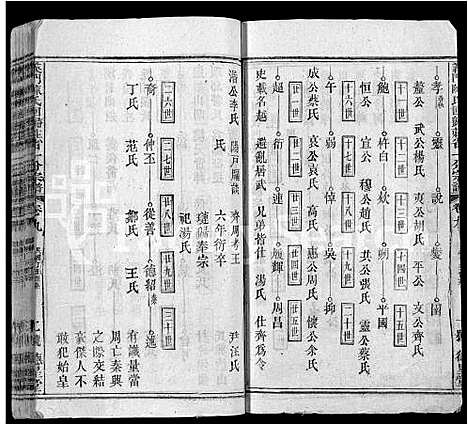 十一世
十二世
十三世
十四世
十五世
孝
說
夔
圉
釐公
武公楊氏
夷公胡氏
平公
文公齊氏
十六世
十七世
十八世
十九世
二十世
鮑
杵臼
款
朔
平國
恒公
宣公
穆公趙氏
共公
靈公蔡氏
午
弱
吳
柳
成公蔡氏
哀公袁氏
惠公周氏
懷公余氏
廿一世
廿二世
廿三世
廿四世
廿五世
越
衍
履
輝
周昌
史載名越
避亂居武
兄弟皆仕
湯氏
仕齊為令
湣公李氏
陽戶牖談
齊周考王
尹汪氏
氏
六年衍卒
璉歸奉宗
祀湯氏
二六世
二七世
二八世
廿九世
三十世
奇
仲丕
從善
德紹
蓮
丁氏
范氏
鄭氏
王氏
有識量當
周亡秦興
之際交結
豪傑人不
敢犯始皇